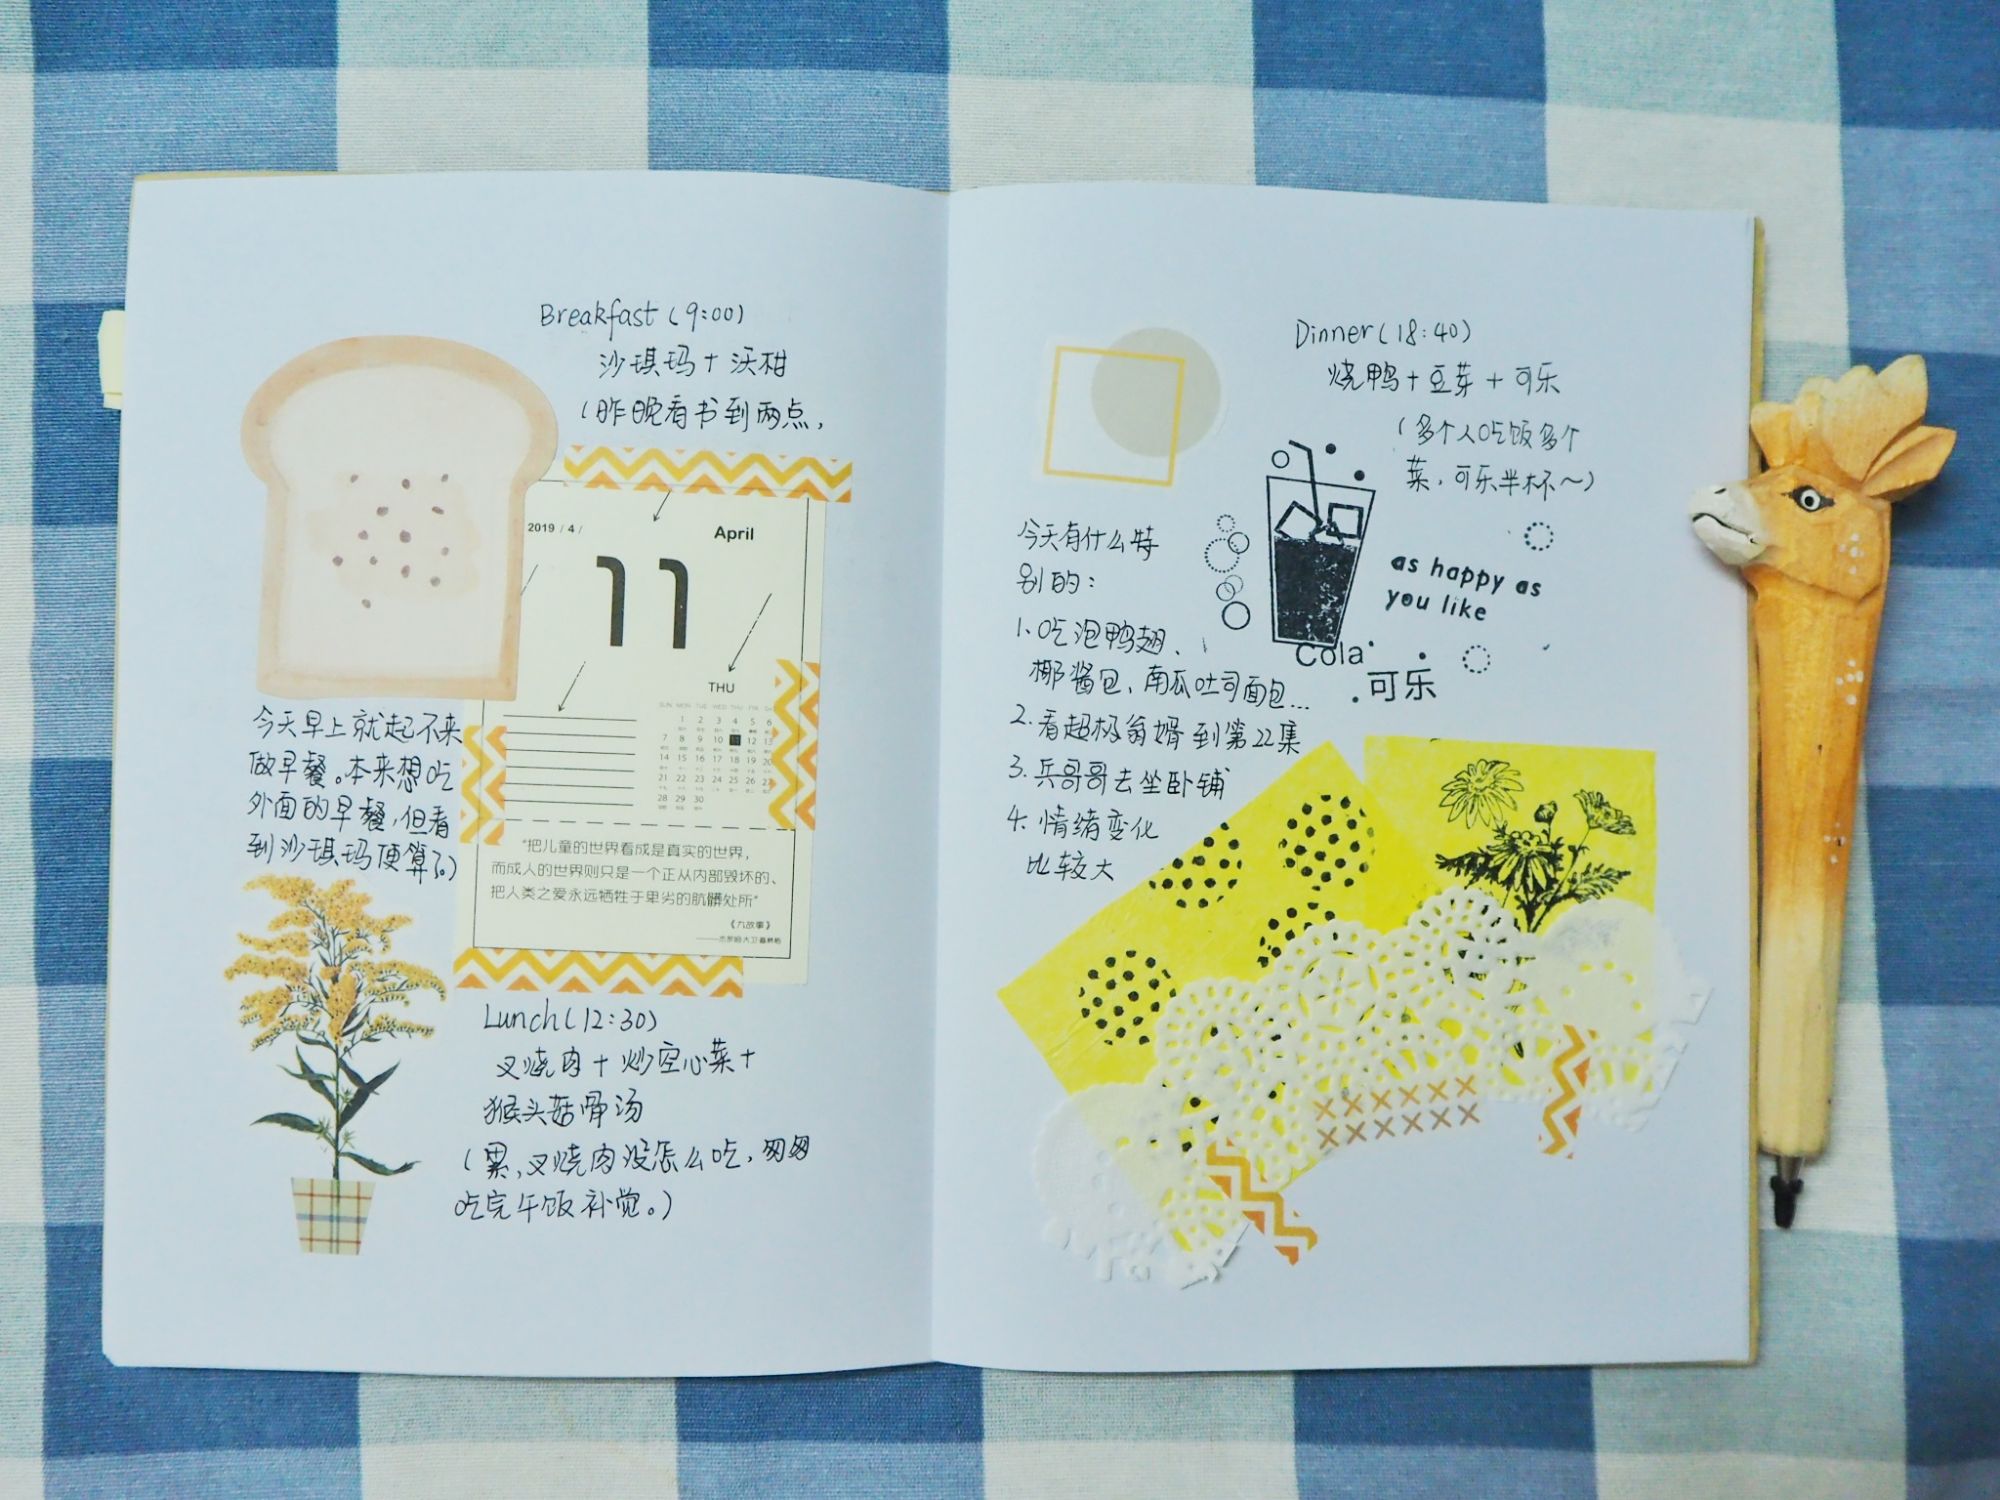 Breakfast(9:00)
沙琪玛+沃柑
(昨晚看书到两点，
今天早上就起不来
做早餐。本来想吃
外面的早餐，但看
到沙琪玛便算了。)
2019 / 4 /
April
11
THU
SUN MON TUE WED THU FRI
1 2 3 4 5 6
7 8 9 10 11 12 13
14 15 16 17 18 19 20
21 22 23 24 25 26 27
28 29 30
“把儿童的世界看成是真实的世界，
而成人的世界则只是一个正从内部毁坏的、
把人类之爱永远牺牲于卑劣的肮髒处所”
《九故事》
Lunch(12:30)
叉烧肉+炒空心菜+
猴头菇骨汤
(累，叉烧肉没怎么吃，匆匆
吃完午饭补觉。)
Dinner(18:40)
烧鸭+豆芽+可乐
(多个人吃饭多个
菜，可乐半杯～)
as happy as
you like
Cola
可乐
今天有什么特
别的：
1.吃泡鸭翅、
椰酱包、南瓜吐司面包...
2.看超极翁婿到第22集
3.兵哥哥去坐卧铺
4.情绪变化
比较大